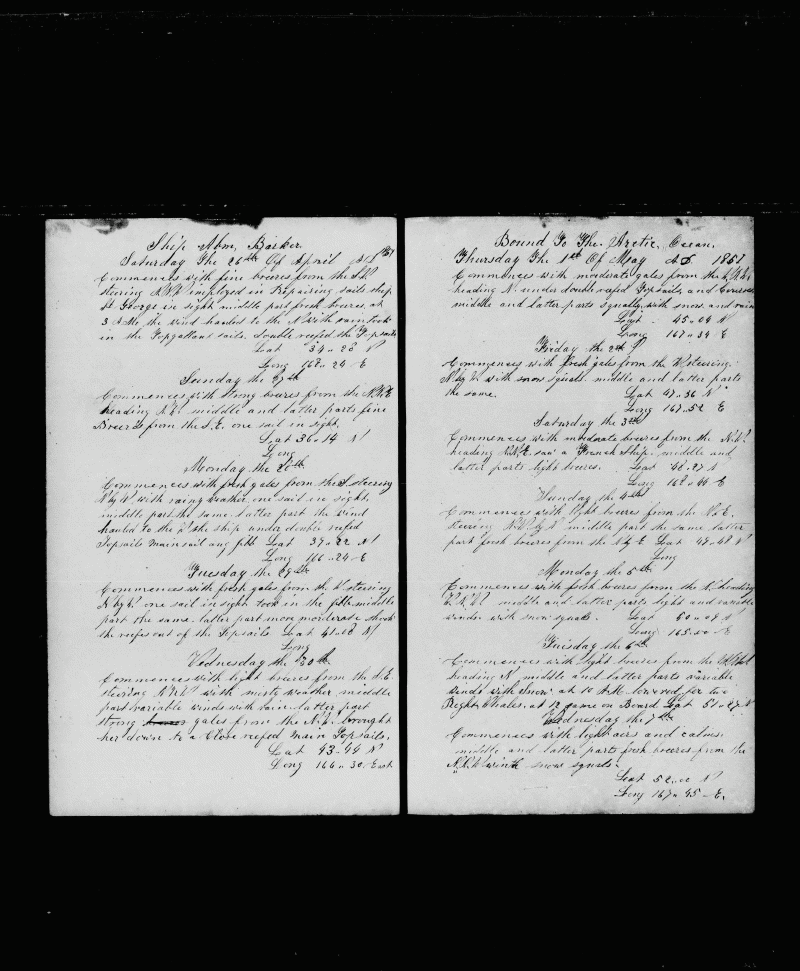 Ship Abm. Barker
Saturday The 26th Of April AD 1851
Commences with fine breezes from the SW
steering NNW employed in Repairing sails ship
St George in sight middle part fresh breezes at
3 the wind hauled to the N with rain took
in the Topgallant sails. Double reefed the Topsails
Lat 34 " 28 N
Long 168 " 24 E
Sunday the 27th
Commences with strong breezes from the
heading middle and latter parts fine
Breezes from the S.E. one sail in sight,
Lat 36 " 14 N
Long
Monday the 28th
Commences with fresh gales from the S steering
N by W with rainy weather, one sail in sight,
middle part the same. latter part the wind
hauled to the the ship under double reefed
Topsails Mainsail and Jibb Lat 39 " 22 N
Long 166 " 24 E
Tuesday the 29th
Commences with fresh gales from the steering
N by W one sail in sight took in the Jibb middle
part the same. latter part more moderate shook
the reefs out of the Topsails Lat 41 " 08 N
Long
Wednesday the 30th
Commences with light breezes from the
steering NNW with misty weather middle
part variable winds with rain latter part
strong gales from the N.E. brought
her down to a Close reefed Main Topsails,
Lat 43 " 44 N
Long 166 " 30 East
Bound To The Arctic Ocean.
Thursday The 1st Of May AD. 1851
Commences with moderate gales from the
heading N. under double reefed Topsails and Courses
middle and latter parts squally with snow and rain
Lat 45 " 04 N
Long 167 " 34 E
Friday the 2nd
Commences with fresh gales from the W steering
N by W with snow squals. middle and latter parts
the same. Lat 47 " 36 N
Long 167 " 52 E
Saturday the 3rd
Commences with moderate breezes from the N.W.
heading saw a French Ship. middle and
latter parts light breezes. Lat 48 " 27 N
Long 168 " 44 E
Sunday the 4th
Commences with light breezes from the
steering middle part the same latter
part fresh breezes from the Lat 49 " 48 N
Long
Monday the 5th
Commences with fresh breezes from the heading
middle and latter parts light and variable
winds with snow squals. Lat 50 " 09 N
Long 165 " 50 E
Tuisday the 6th
Commences with light breezes from the
heading N middle and latter parts variable
winds with Snow at 10 lowered for two
Right Whales. at 12 came on Board Lat 51 " 27 N
Wednesday the 7th
Commences with light airs and calms.
middle and latter parts fresh breezes from the
N.N.W with snow squals.
Lat 52 " 00 N
Long 167 " 45 E.